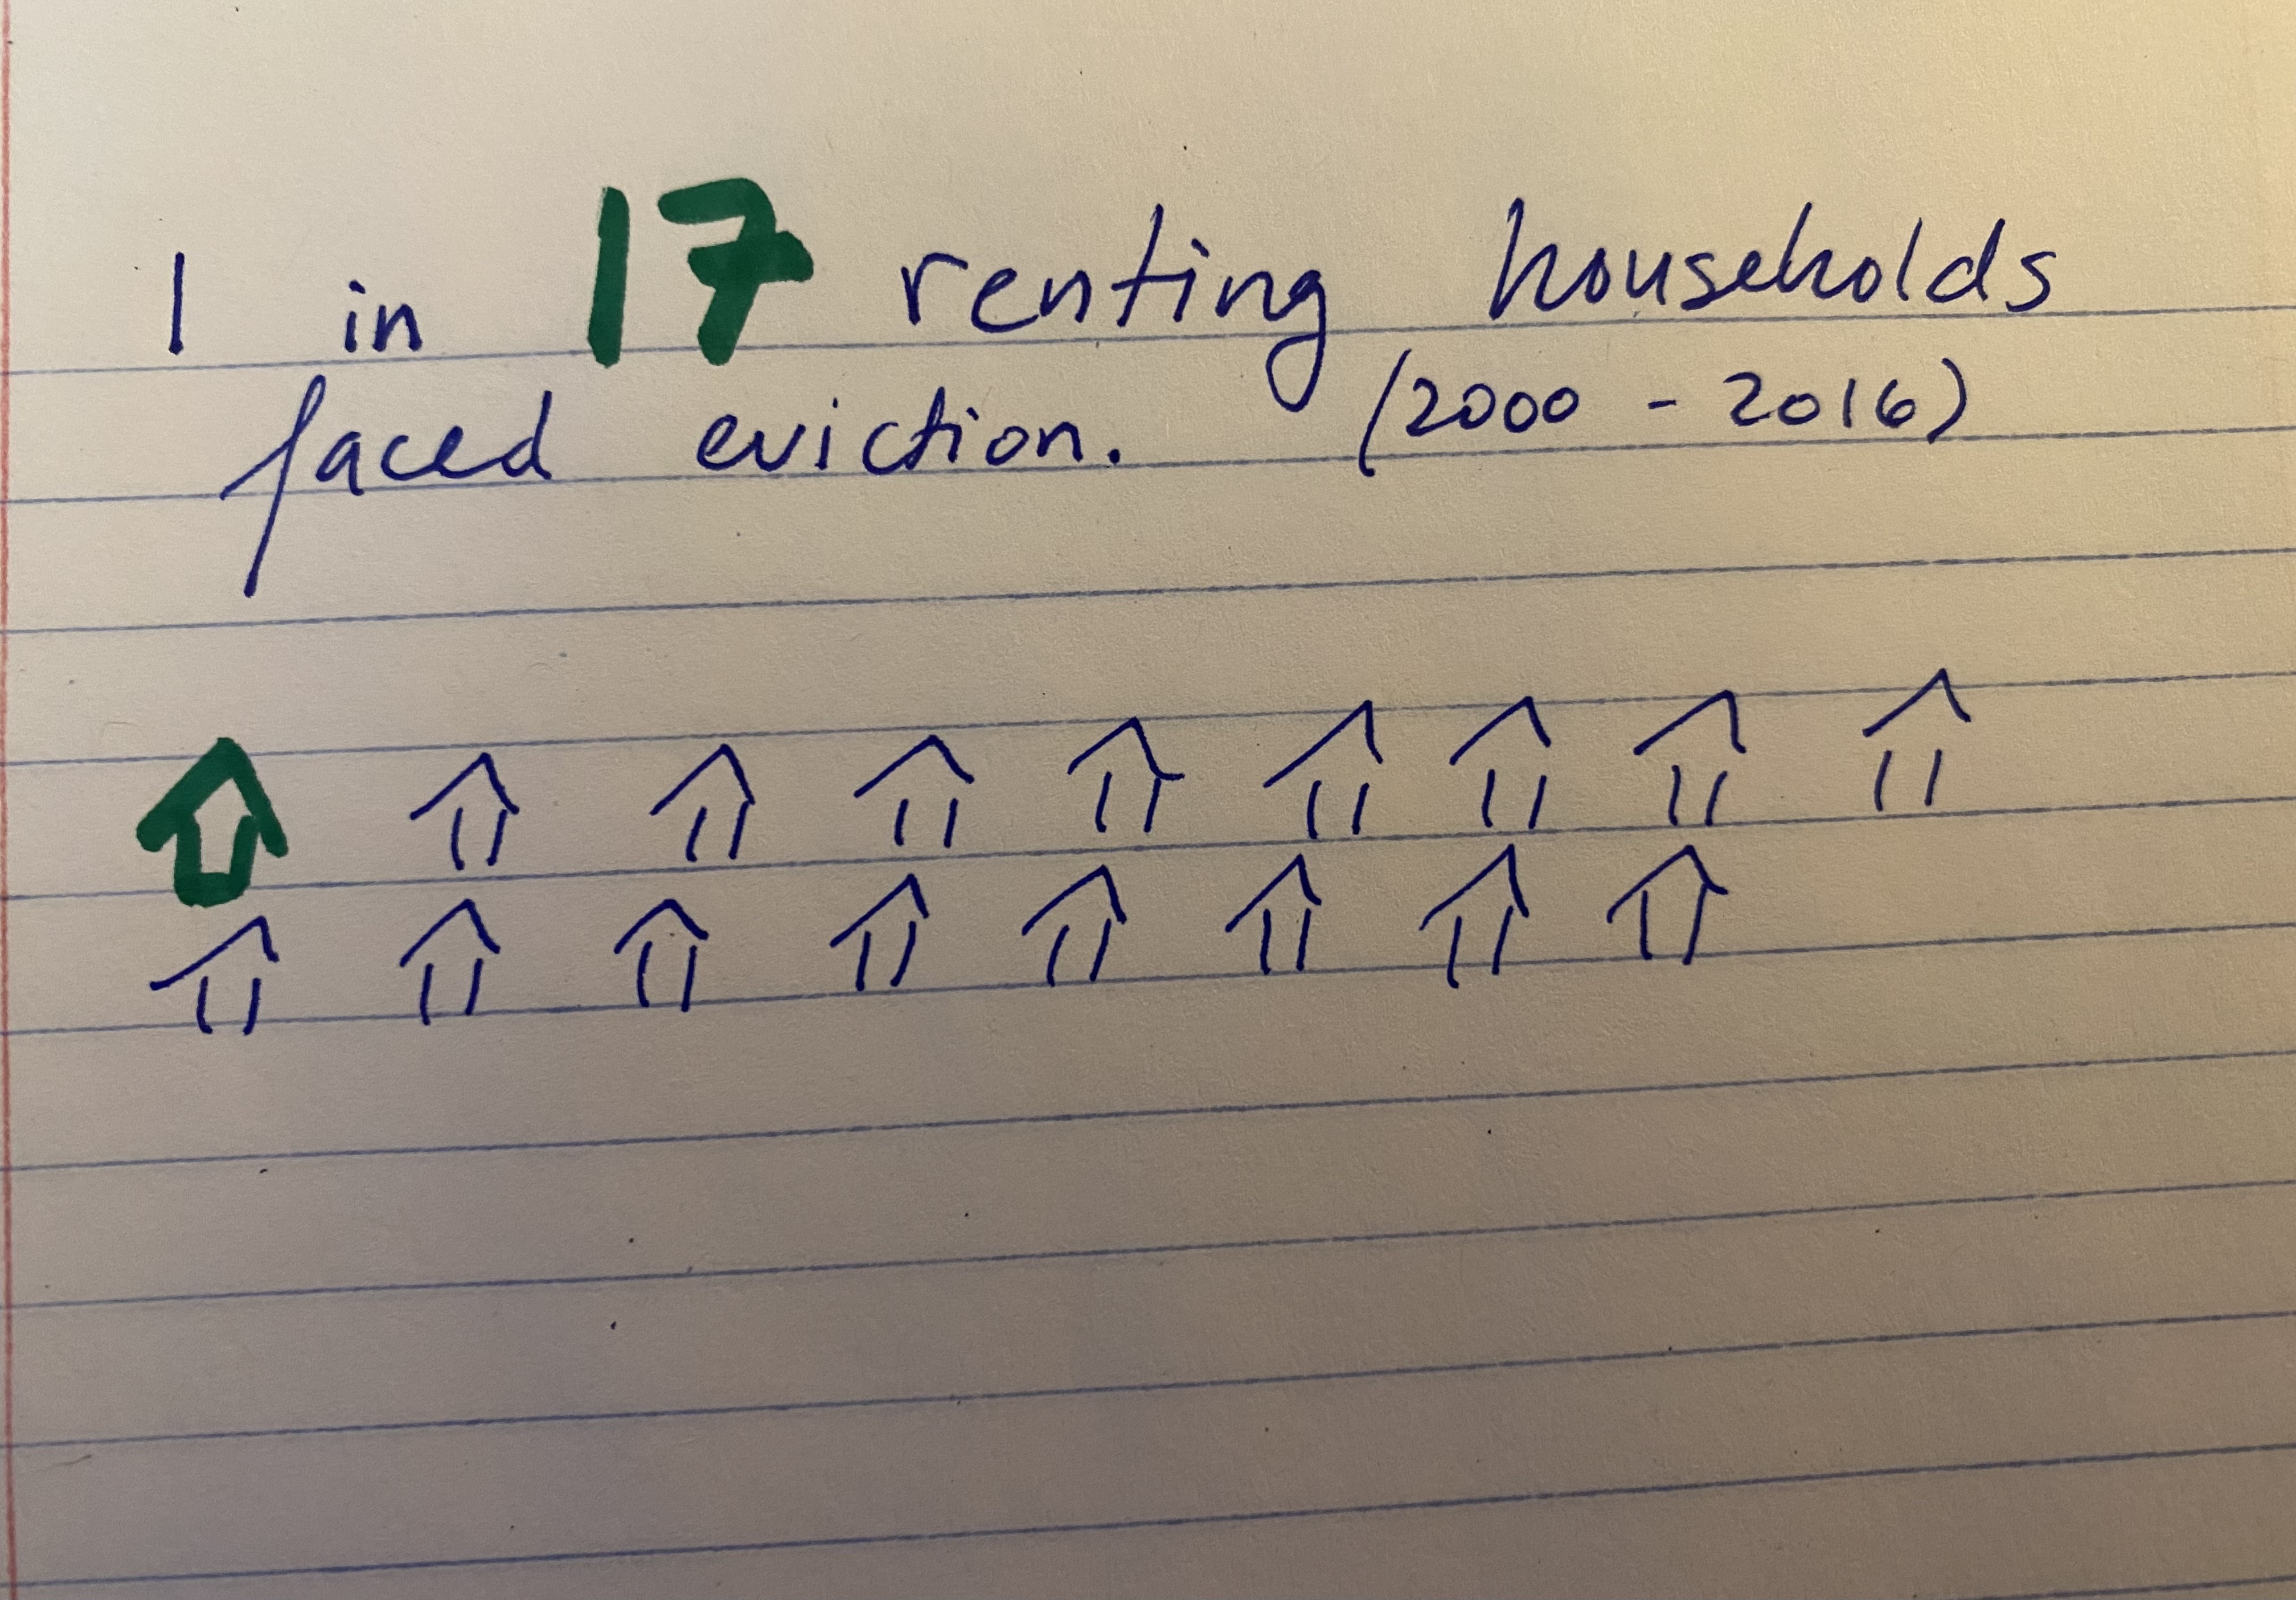 1 in 17 renting households
faced eviction. (2000 - 2016)